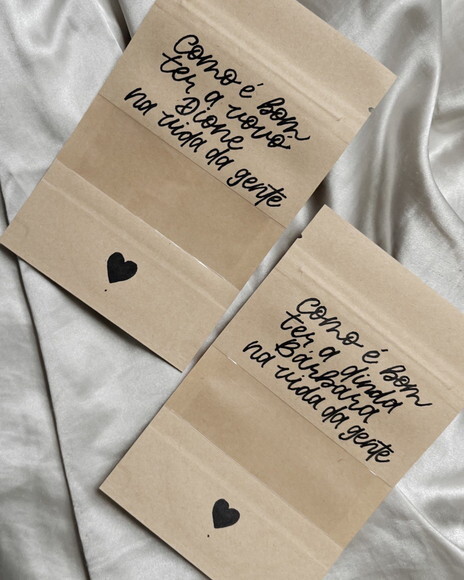 Como é bom
ter a vovó
Dione
na vida da gente
Como é bom
ter a dinda
Bárbara
na vida da gente